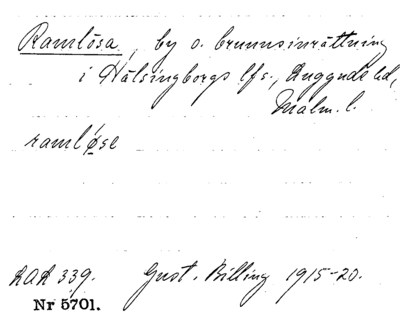 Ramlösa, by o. brunnsinrättning
i Hälsingborgs lfs., Luggude hd,
Malm. l.
ramlǿse
RAR 339. Gust. Billing 1915-20.
Nr 5701.